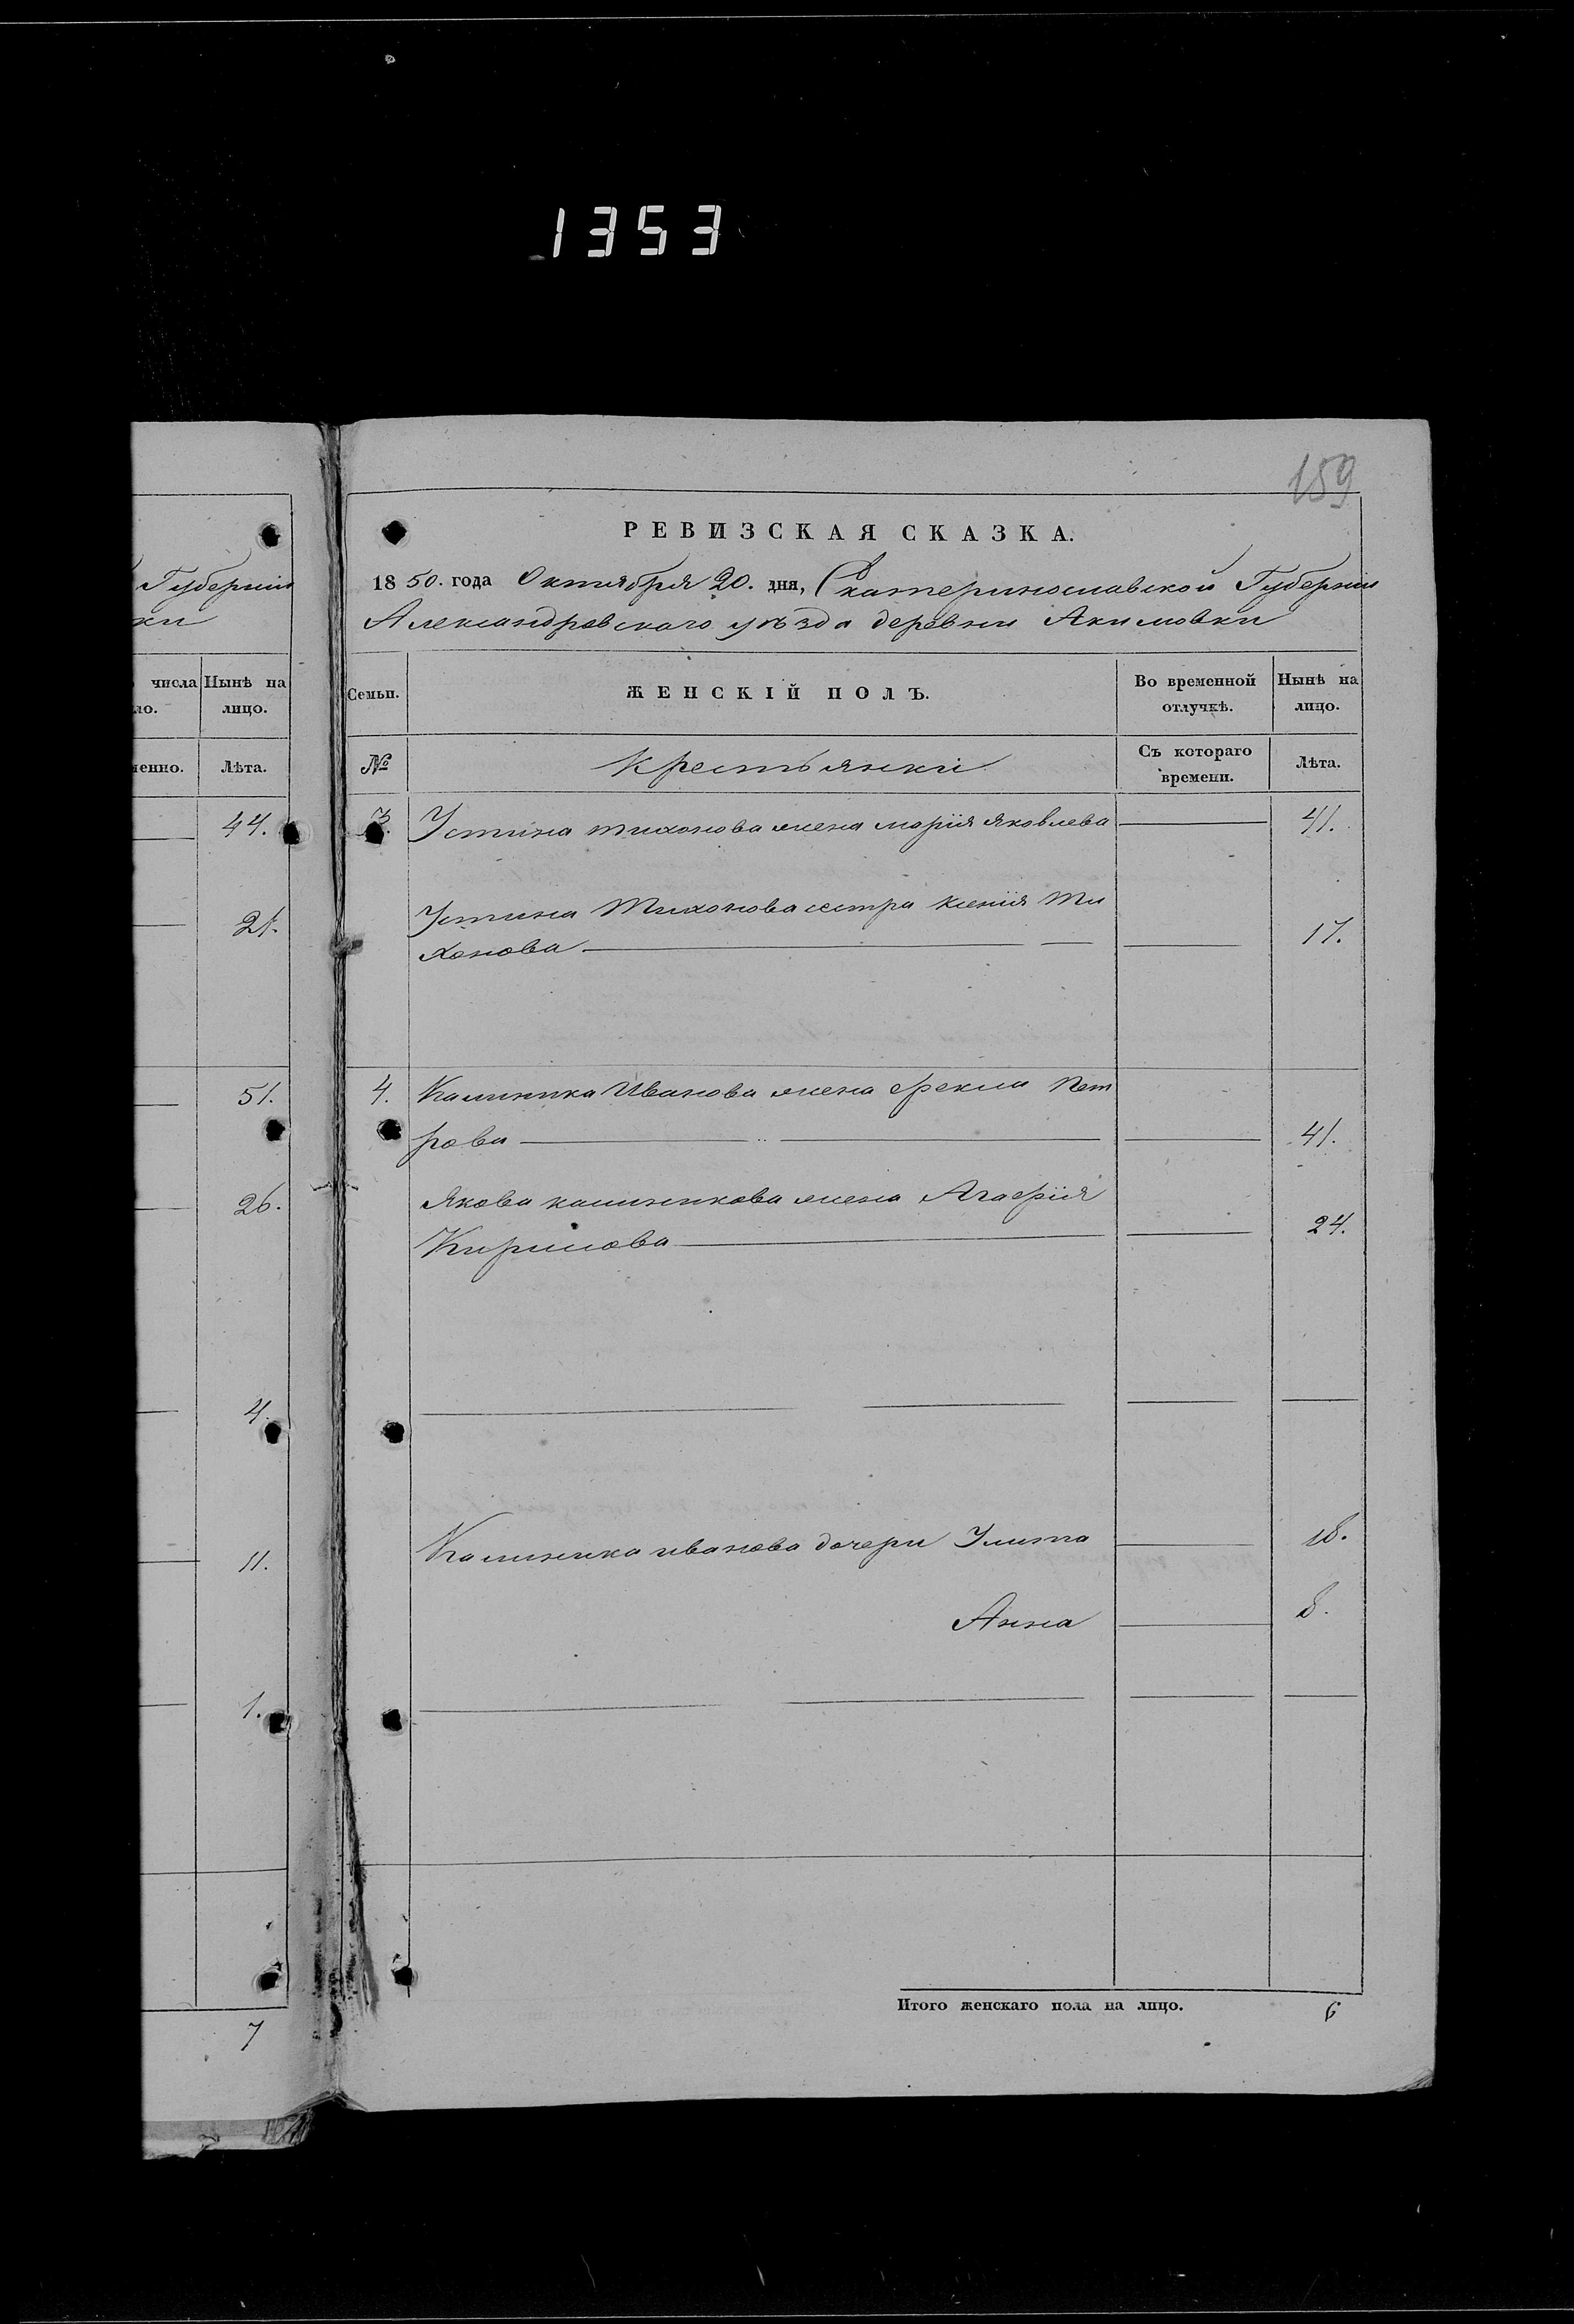 1353
159
Губерніи
ки
числа Нынѣ на
ло. лицо.
менно. Лѣта.
44.
21.
51.
26.
4.
11.
1.
7
РЕВИЗСКАЯ СКАЗКА.
1850. года Октября 20. дня, Екатеринославской Губерніи
Александровскаго уѣзда деревни Акимовки
Семьи. ЖЕНСКІЙ ПОЛЪ. Во временной отлучкѣ. Нынѣ на лицо.
№ Крестьянки Съ котораго времени. Лѣта.
3. Устина тихонова жена марія яковлева 41.
Устина Тихонова сестра ксенія Ти
хонова 17.
4. Калиника Иванова жена фекла Пет
рова 41.
Якова калиникова жена Агафія
Кирилова 24.
Калиника иванова дочери Улита 18.
Анна 8.
Итого женскаго пола на лицо. 6